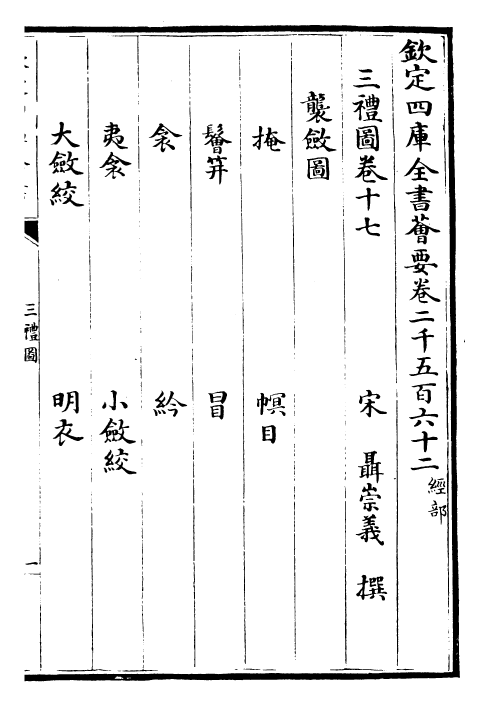 欽定四庫全書薈要卷二千五百六十二 經部
三禮圖卷十七 宋 聶崇義 撰
襲斂圖
掩 幎目
鬠笄 冒
衾 紟
夷衾 小斂絞
大斂絞 明衣
三禮圖
一